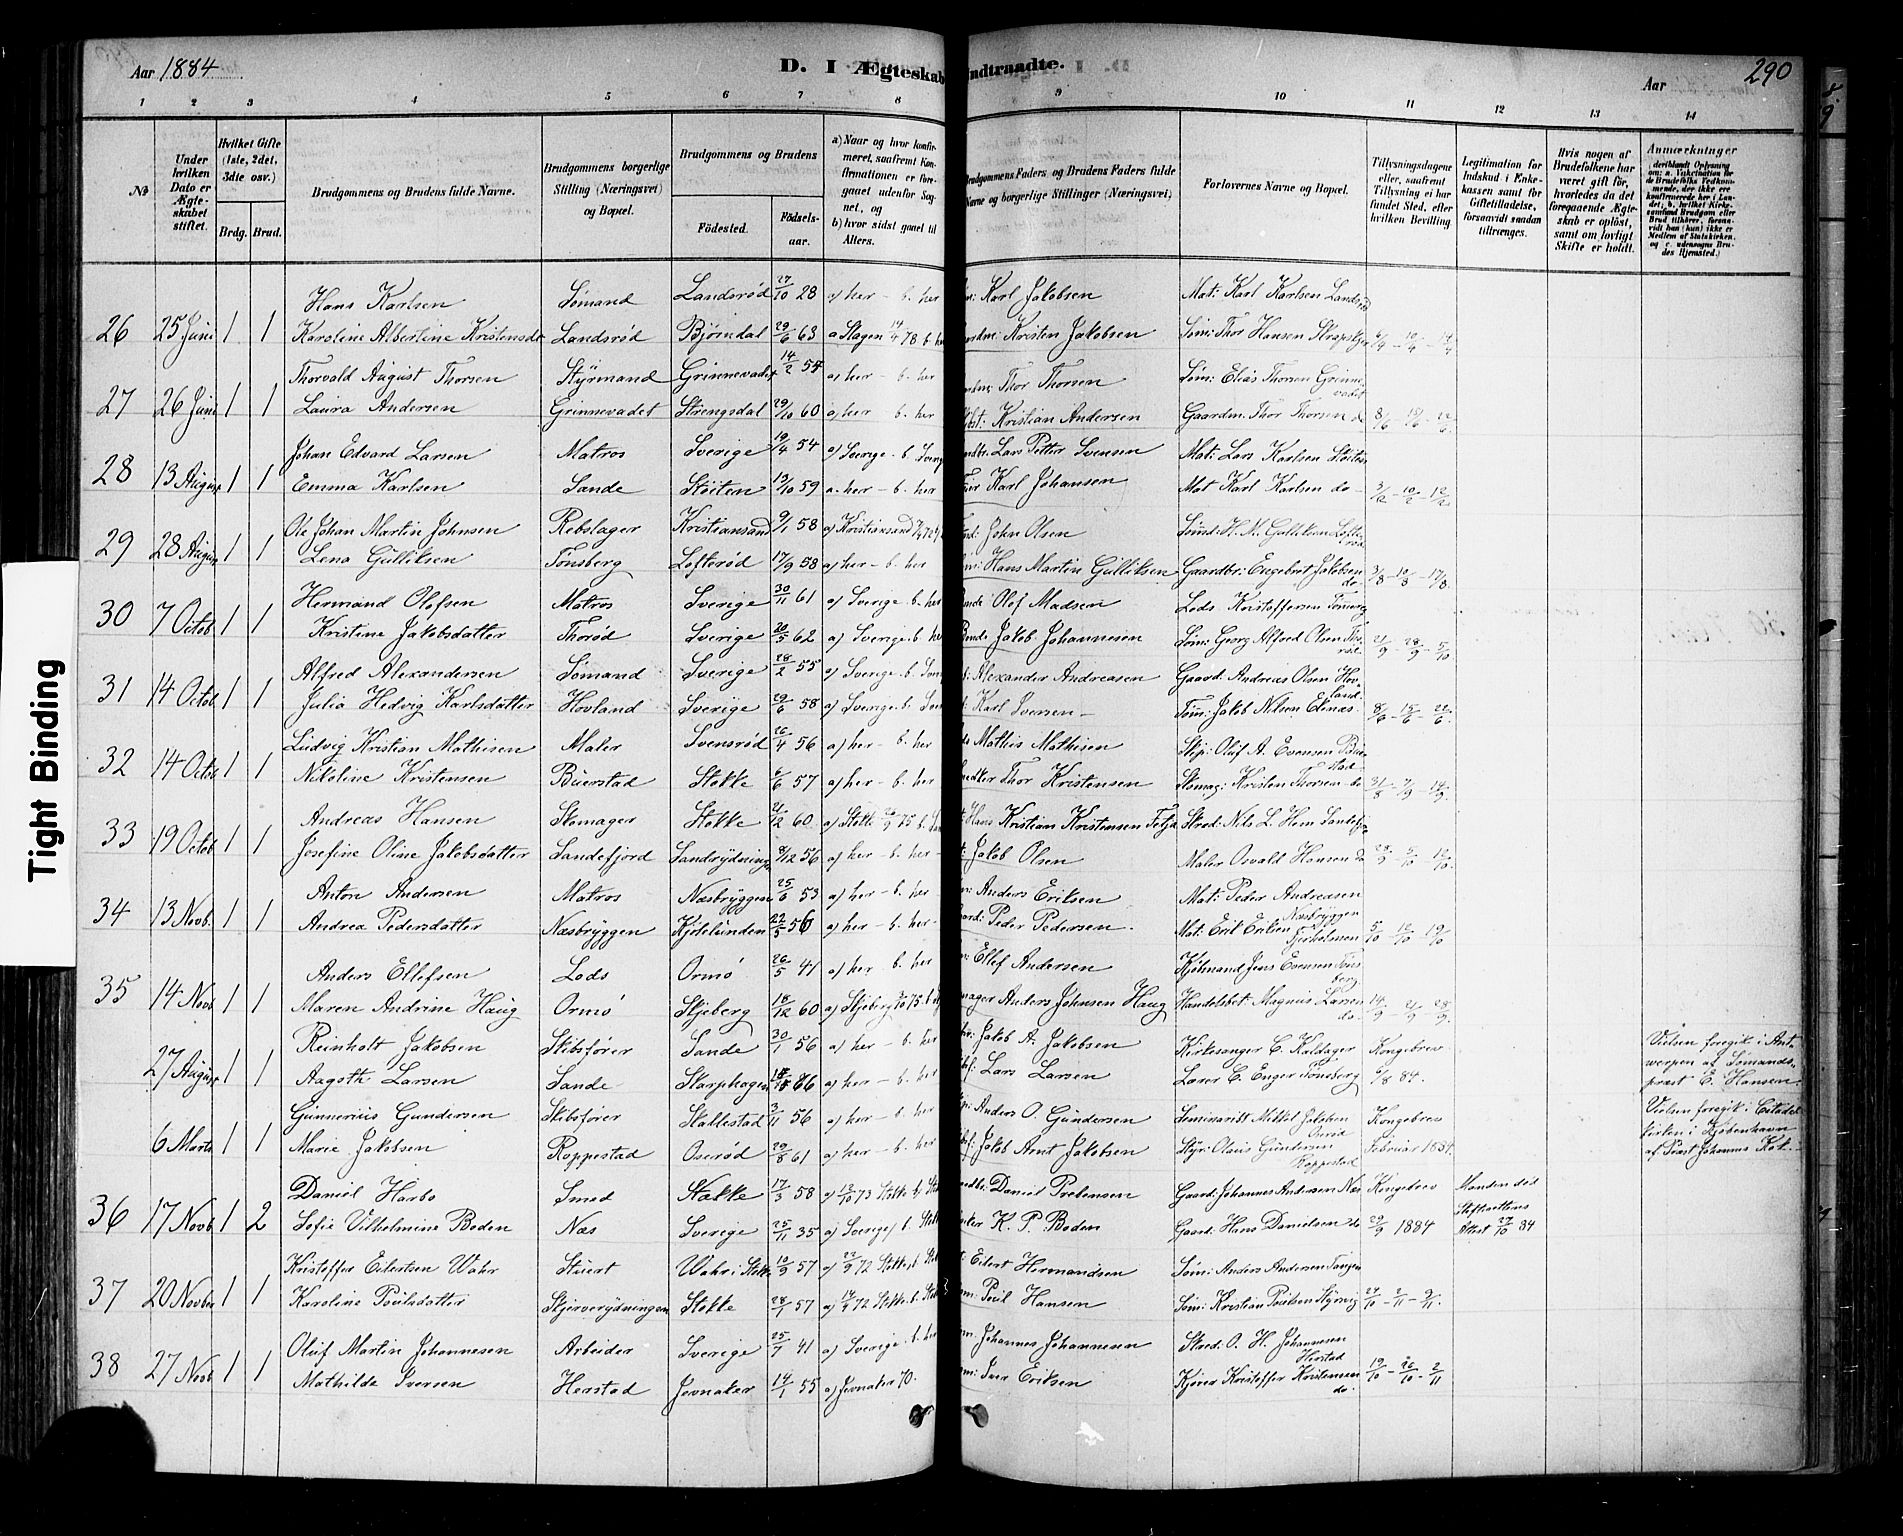 Tight Binding
Aar 1884
D. I Ægteskab Indtraadte.
290
Aar
1 2 3 4 5 6 7 8 9 10 11 12 13 14
No
Under hvilken Dato er Ægteskabet stiftet.
Hvilket Gifte (1ste, 2det, 3die osv.)
Brdg. Brud.
Brudgommens og Brudens fulde Navne.
Brudgommens borgerlige Stilling (Næringsvei) og Bopæl.
Brudgommens og Brudens
Födested. Födsels-aar.
a) Naar og hvor konfirmeret, saafremt Konfirmationen er foregaaet udenfor Sognet, og
b) hvor sidst gaaet til Alters.
Brudgommens Faders og Brudens Faders fulde Navne og borgerlige Stillinger (Næringsvei)
Forlovernes Navne og Bopæl.
Tillysningsdagene eller, saafremt Tillysning ei har fundet Sted, efter hvilken Bevilling
Legitimation for Indskud i Enkekassen samt for Giftetilladelse, forsaavidt saadan tiltrænges.
Hvis nogen af Brudefolkene har været gift før, hvorledes da det foregaaende Ægteskab er oplöst, samt om lovligt Skifte er holdt.
Anmærkninger
Hans Karlsen Sömand Landsröd 27/10 28 a) her - b. her Karl Jakobsen Mat: Karl Karlsen
26 25 Juni 1 1 Karoline Albertine Kristensdr Landsröd Björndal 29/6 63 a Slagen 14/4 78 b. her Kristen Jakobsen Söm: Thor Hansen
Thorvald August Thorsen Styrmand Grinnevadet 14/2 54 a) her - b. her Thor Thorsen Söm: Elias Thorsen Grinnevadet
27 26 Juni 1 1 Laura Andersen Grinnevadet Strengsdal 29/10 60 a) her b. her Kristian Andersen Gaardm. Thor Thorsen do
Johan Edvard Larsen Matros Sverige 19/4 54 a) Sverige b. Lars Petter Svensen Mat: Lars Karlsen
28 13 August 1 1 Emma Karlsen Sande Stöiten 13/10 59 a. her - b. her Karl Johansen Mat Karl Karlsen do - 3/2 - 10/2 - 17/2
Ole Johan Martin Johnsen Rebslager Kristiansand 9/1 58 a) Kristiansand John Olsen Sömd: H. M. Gulliksen Lofteröd
29 28 August 1 1 Lena Gulliksen Tönsberg Lofteröd 17/9 58 a) her - b. her Hans Martin Gulliksen Gaardbr: Engebret Jakobsen do. 3/8 - 10/8 - 17/8
Hermand Olofsen Matros Sverige 30/11 61 a) Sverige b. her Olof Madsen Lods Kristoffersen
30 7 Octob 1 1 Kristine Jakobsdatter Thoröd Sverige 20/5 62 a) Sverige b. her Jakob Johannesen Söm: Georg Alfred Olsen 21/9 - 28/9 - 5/10
Alfred Alexandersen Sömand Sverige 28/2 55 a) Sverige b. Alexander Andreasen Gaard: Andreas Olsen Hovland
31 14 Octob 1 1 Julia Hedvig Karlsdatter Hovland Sverige 29/6 58 a) Sverige b. Karl Iversen - Töm: Jakob Nilsen Ekenæs. 8/6 - 15/6 - 22/6
Ludvig Kristian Mathisen Maler Svensröd 26/4 56 a) her - b. her Mathis Mathisen Skip: Oluf A. Evensen
32 14 Octob 1 1 Nikoline Kristensen Buerstad Stokke 6/6 57 a) her - b. her Thor Kristensen Skomag: Kristen Thorsen do 31/8 - 7/9 - 14/9
Andreas Hansen Skomager Stokke 21/12 60 a) Stokke 75 b. Hans Kristian Kristensen Skred: Nils L. Hem Sandefjord
33 19 Octob 1 1 Josefine Oline Jakobsdatter Sandefjord Sandrydningen 8/12 56 a) her - b. her Jakob Olsen Maler Osvald Hansen do 28/9 - 5/10 - 12/10
Anton Andersen Matros Næsbryggen 25/6 53 a) her - b. her Anders Eriksen Mat: Peder Andreasen Næsbryggen
34 13 Novb. 1 1 Andrea Pedersdatter Næsbryggen Kjölelunden 22/3 56 a) her - b. her Peder Pedersen. Mat: Erik Eriksen 5/10 - 12/10 - 19/10
Anders Ellefsen Lods Ormö 26/5 41 a) her - b. her Ellef Andersen Kjöbmand Jens Evensen Tönsberg.
35 14 Novb 1 1 Maren Andrine Haug Ormö Skjeberg 18/12 60 a) Skjeberg Anders Johnsen Haug Handelsbet. Magnus Larsen do. 14/9 - 21/9 - 28/9
Reinholt Jakobsen Skibsförer Sande 30/1 56 a) her - b. her Jakob A. Jakobsen Kirkesanger C. Kaldager Kongebrev
27 August 1 1 Aagoth Larsen Sande 66 a) her - b. her Lars Larsen Lærer C. Enger Tönsberg 6/8 84.
Vielsen foregik i Antwerpen af Sömandspræst E. Hansen.
Gunnerius Gundersen Skibsförer Skallestad 3/11 56 a) her - b. her Anders O. Gundersen Seminarist Mikkel Jakobsen Kongebrev
6 Marts 1 1 Marie Jakobsen Roppestad Oseröd 29/8 61 a) her - b. her Jakob Arnt Jakobsen Styr: Olaus Gundersen Roppestad Februar 1884.
Vielsen foregik i Citadelkirken i Kjöbenhavn af Præst Johannes Kok.
Daniel Harbo Smed Stokke 17/3 58 a) 12/10 73 Stokke b) Daniel Prebensen Gaard: Johannes Andersen Næs Kongebrev Manden död
36 17 Novb 1 2 Sofie Vilhelmine Boden Næs Sverige 25/11 35 a) Sverige b. K. P. Boden Gaard: Hans Danielsen do 29/9 1884 Skifterettens Attest 27/10 84
Kristoffer Eilertsen Wahr Stuert Wahr i Stokke 10/9 57 a) 22/9 72 Stokke b. Eilert Hermandsen Söm: Anders Andersen Tangen
37 20 Novbr 1 1 Karoline Poulsdatter Skjerverydningen Stokke 28/1 57 a) 72 Stokke b. Poul Hansen Söm: Kristian Poulsen 27/10 - 2/11 - 9/11.
Oluf Martin Johannesen Arbeider Sverige 25/7 41 a) Sverige b. her Johannes Johannesen Skred: O. H. Johannesen Herstad
38 27 Novb 1 1 Mathilde Iversen Herstad Jevnaker 14/1 55 a) Jevnaker 70. Iver Eriksen Kjörer Kristoffer Kristensen do. 19/10 - 26/10 - 2/11